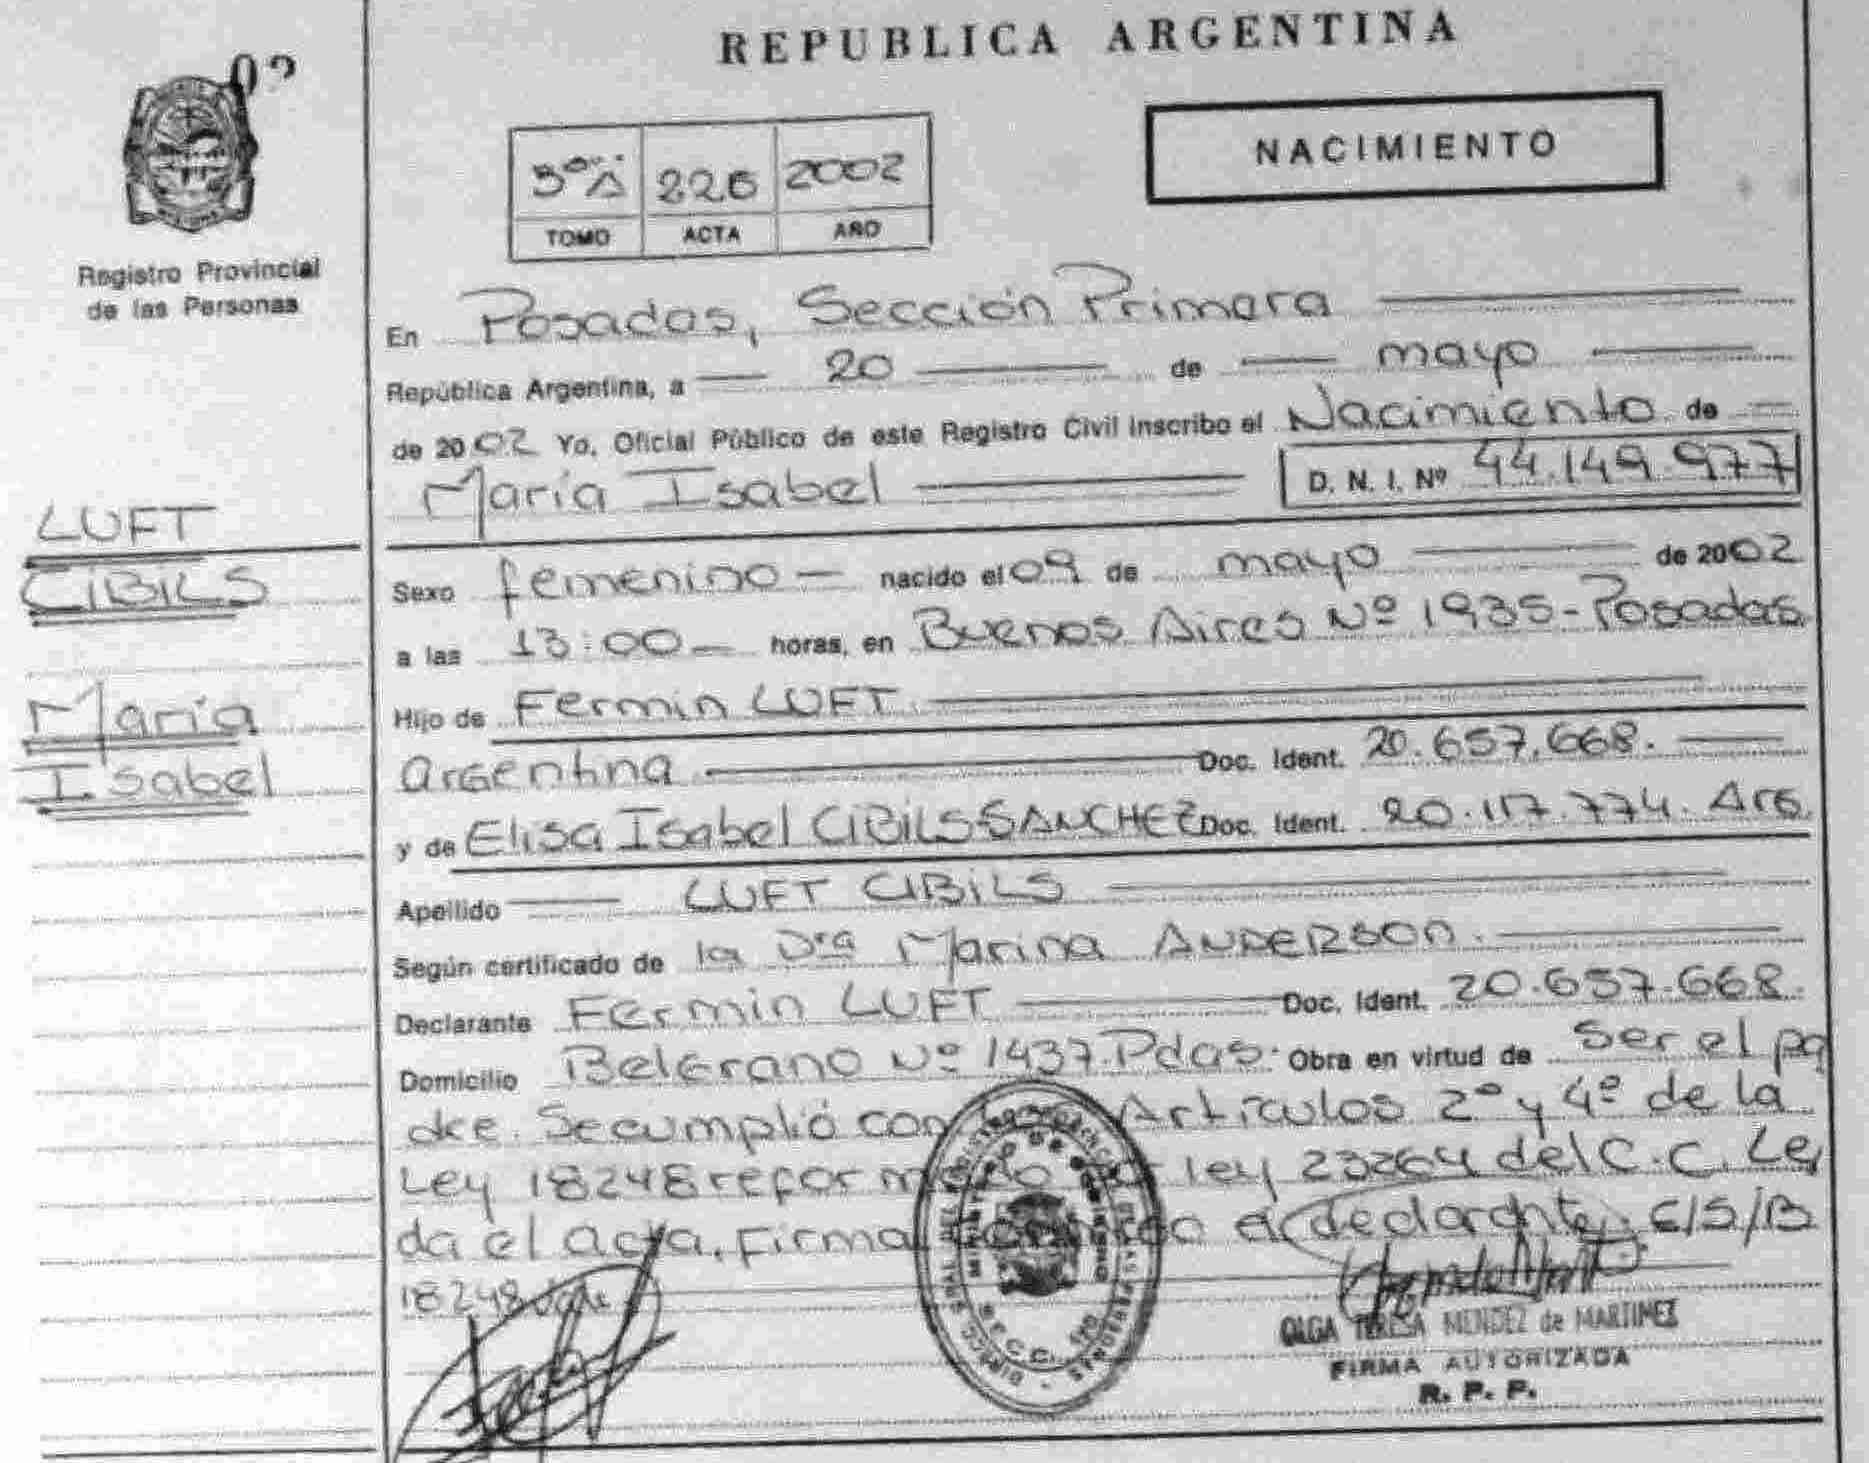 REPUBLICA ARGENTINA
02
NACIMIENTO
3º A 226 2002
TOMO ACTA AÑO
Registro Provincial
de las Personas
En Posadas, Sección Primera
República Argentina, a 20 de mayo
de 2002 Yo, Oficial Público de este Registro Civil inscribo el Nacimiento de
María Isabel D. N. I. Nº 44.149.977
LUFT
CIBILS
María
Isabel
Sexo femenino nacido el 09 de mayo de 2002
a las 13:00 horas, en Buenos Aires Nº 1935-Posadas
Hijo de Fermin LUFT
argentina Doc. Ident. 20.657.668.
y de Elisa Isabel CIBILS SANCHEZ Doc. Ident. 20.117.774. Arg.
Apellido LUFT CIBILS
Según certificado de la Dra Marina ANDERSON.
Declarante Fermin LUFT Doc. Ident. 20.657.668.
Domicilio Belgrano Nº 1437. Pdas. Obra en virtud de ser el pa
dre. Se cumplió con Artículos 2º y 4º de la
Ley 18248 reformado por ley 23264 del C.C. Leí
da el acta, Firma conmigo el declarante. E/S/B
18248 Vale
OLGA TERESA MENDEZ de MARTINEZ
FIRMA AUTORIZADA
R. P. P.